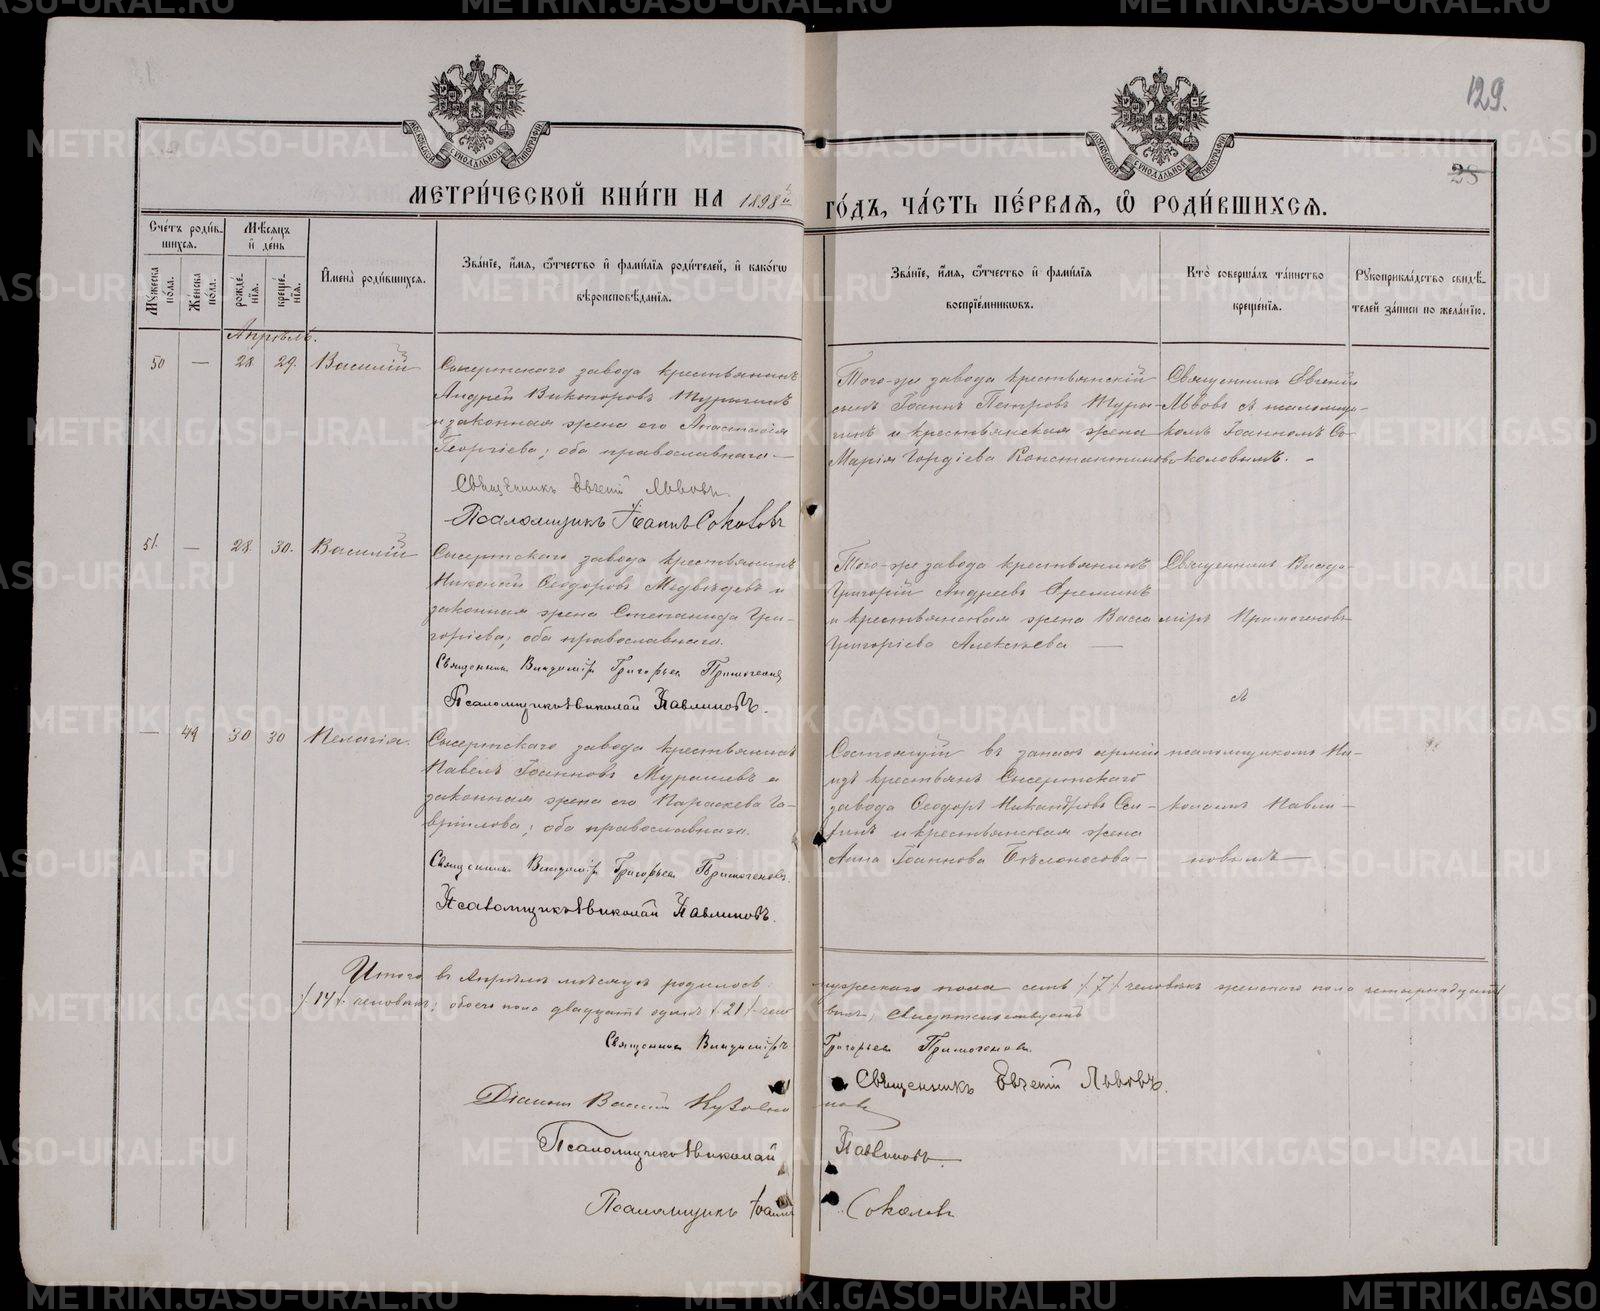 129.
28
МОСКОВСКОЙ СѴНОДАЛЬНОЙ ТИПОГРАФІИ
МЕТРИ́ЧЕСКОЙ КНИ́ГИ НА 1898й ГО́ДЪ, ЧА́СТЬ ПЕ́РВАѦ, Ѡ҆ РОДИ́ВШИХСѦ.
Сче́тъ роди́вшихсѧ.
Мꙋ́жеска по́ла.
Же́нска по́ла.
Мѣ́сѧцъ и҆ де́нь
рожде́нїѧ.
креще́нїѧ.
И҆мена̀ роди́вшихсѧ.
Зва́нїе, и҆́мѧ, ѻ҆́тчество и҆ фами́лїѧ роди́телей, и҆ како́гѡ вѣроисповѣ́данїѧ.
Зва́нїе, и҆́мѧ, ѻ҆́тчество и҆ фами́лїѧ воспрїе́мникѡвъ.
Кто̀ соверша́лъ та́инство креще́нїѧ.
Рꙋкоприкла́дство свидѣ́телей за́писи по жела́нїю.
Апрѣль.
50 — 28 29. Василій
Сысертскаго завода крестьянинъ
Андрей Викторовъ Турыгинъ
и законная жена его Анастасія
Георгіева; оба православнаго —
Священникъ Евгеній Львовъ.
Псаломщикъ Іоаннъ Соколовъ
Того-же завода крестьянскій
сынъ Іоаннъ Петровъ Туры-
гинъ и крестьянская жена
Марія Гордіева Константинова
Священникъ Евгеній
Львовъ съ псаломщи-
комъ Іоанномъ Со-
коловымъ. -
51. — 28 30. Василій
Сысертскаго завода крестьянинъ
Николай Ѳеодоровъ Медвѣдевъ и
законная жена Степанида Гри-
горіева; оба православнаго.
Священникъ Владиміръ Григорьев Примогеновъ
Псаломщикъ Николай Павлиновъ.
Того-же завода крестьянинъ
Григорій Андреевъ
и крестьянская жена Васса
Григоріева Алексѣева —
Священникъ Влади-
міръ Примогеновъ
съ
— 49 30 30 Пелагія.
Сысертскаго завода крестьянинъ
Павелъ Іоанновъ Мурашевъ и
законная жена его Параскева Га-
вріилова; оба православнаго.
Священникъ Владиміръ Григорьев Примогеновъ.
Псаломщикъ Николай Павлиновъ.
Состоящій въ запасѣ арміи
изъ крестьянъ Сысертскаго
завода Ѳеодоръ Никандровъ
и крестьянская жена
Анна Іоаннова Бѣлоносова-
псаломщикомъ Ни-
колаемъ Павли-
новымъ —
Итого въ Апрѣлѣ мѣсяцѣ родилось: мужескаго пола семь /7/ человѣкъ женскаго пола четырнадцать
/14/ человѣкъ; обоего пола двадцать одинъ /21/ человѣкъ; свидѣтельствуютъ
Священникъ Владиміръ Григорьев Примогеновъ.
Священникъ Евгеній Львовъ.
Діаконъ Василій
Псаломщикъ Николай Павлиновъ.
Псаломщикъ Іоаннъ Соколовъ
METRIKI.GASO-URAL.RU